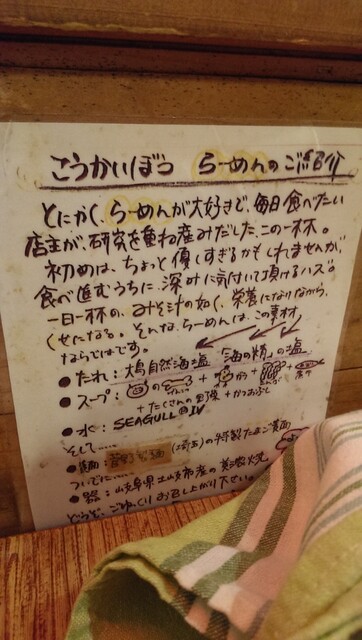 こうかいぼう らーめんのご紹介
とにかく、らーめんが大好きで、毎日食べたい
店主が、研究を重ね産みだした、この一杯。
初めは、ちょっと優しすぎるかもしれませんが、
食べ進むうちに、深みに気付いて頂けるハズ。
一日一杯の、みそ汁の如く、栄養になりながら、
くせになる。そんな、らーめんは、この素材
ならではです。
●たれ:大島自然海塩「海の精」の塩
●スープ: + + +
+たくさんの野菜+かつおぶし
●水:SEAGULL Ⅳ
そして
●麺:菅野製麺(埼玉)の特製たまご麺
ついでに
●器:岐阜県土岐市産の美濃焼
どうぞ、ごゆっくりお召し上がり下さい